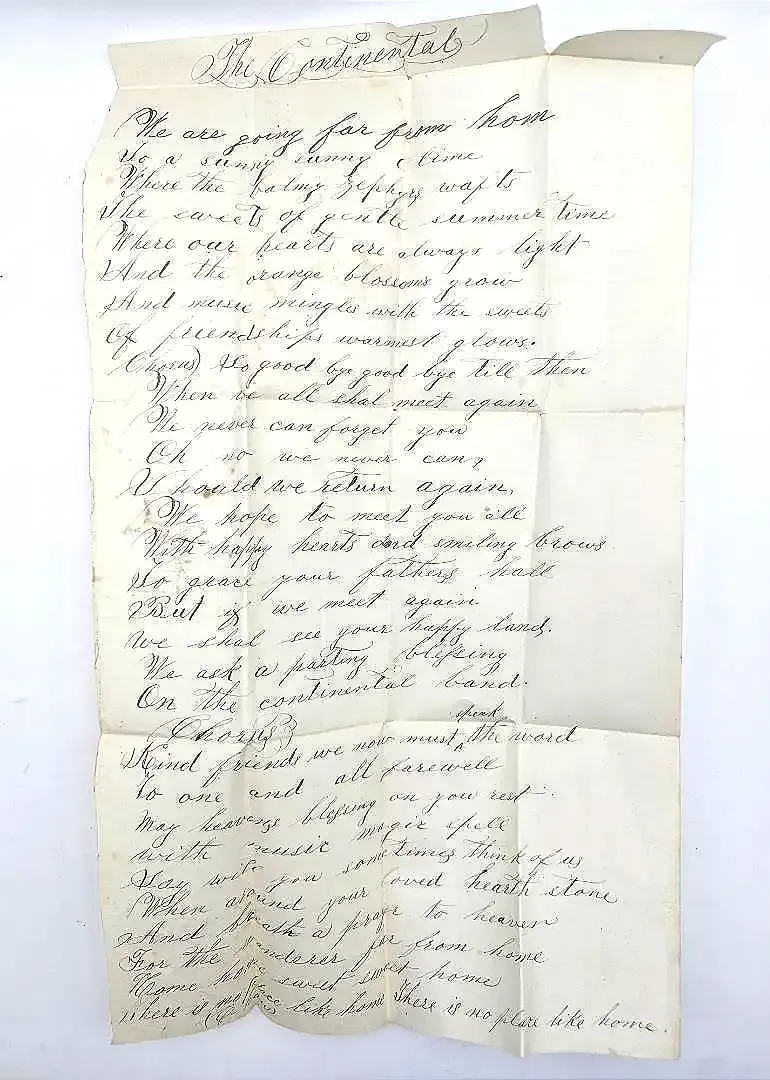 The Continental
We are going far from hom
To a sunny sunny clime
Where the balmy zephyrs wafts
The sweets of gentle summer time
Where our hearts are always light
And the orange blossoms grow
And music mingles with the sweets
Of friendships warmest glows.
Chorus) So good bye good bye till then
When we all shal meet again
We never can forget you
Oh no we never can,
Should we return again,
We hope to meet you all
With happy hearts and smiling brows
To grace your fathers hall
But if we meet again
we shal see your happy land.
We ask a parting blessing
On the continental band.
(Chorus)
Kind friends we now must speak the word
To one and all farewell
May heavens blessing on you rest
with music magic spell
Say will you sometimes think of us
When around your loved hearth stone
And breath a prayr to heaven
For the wanderer far from home
Home home sweet sweet home
There is no place like home There is no place like home.